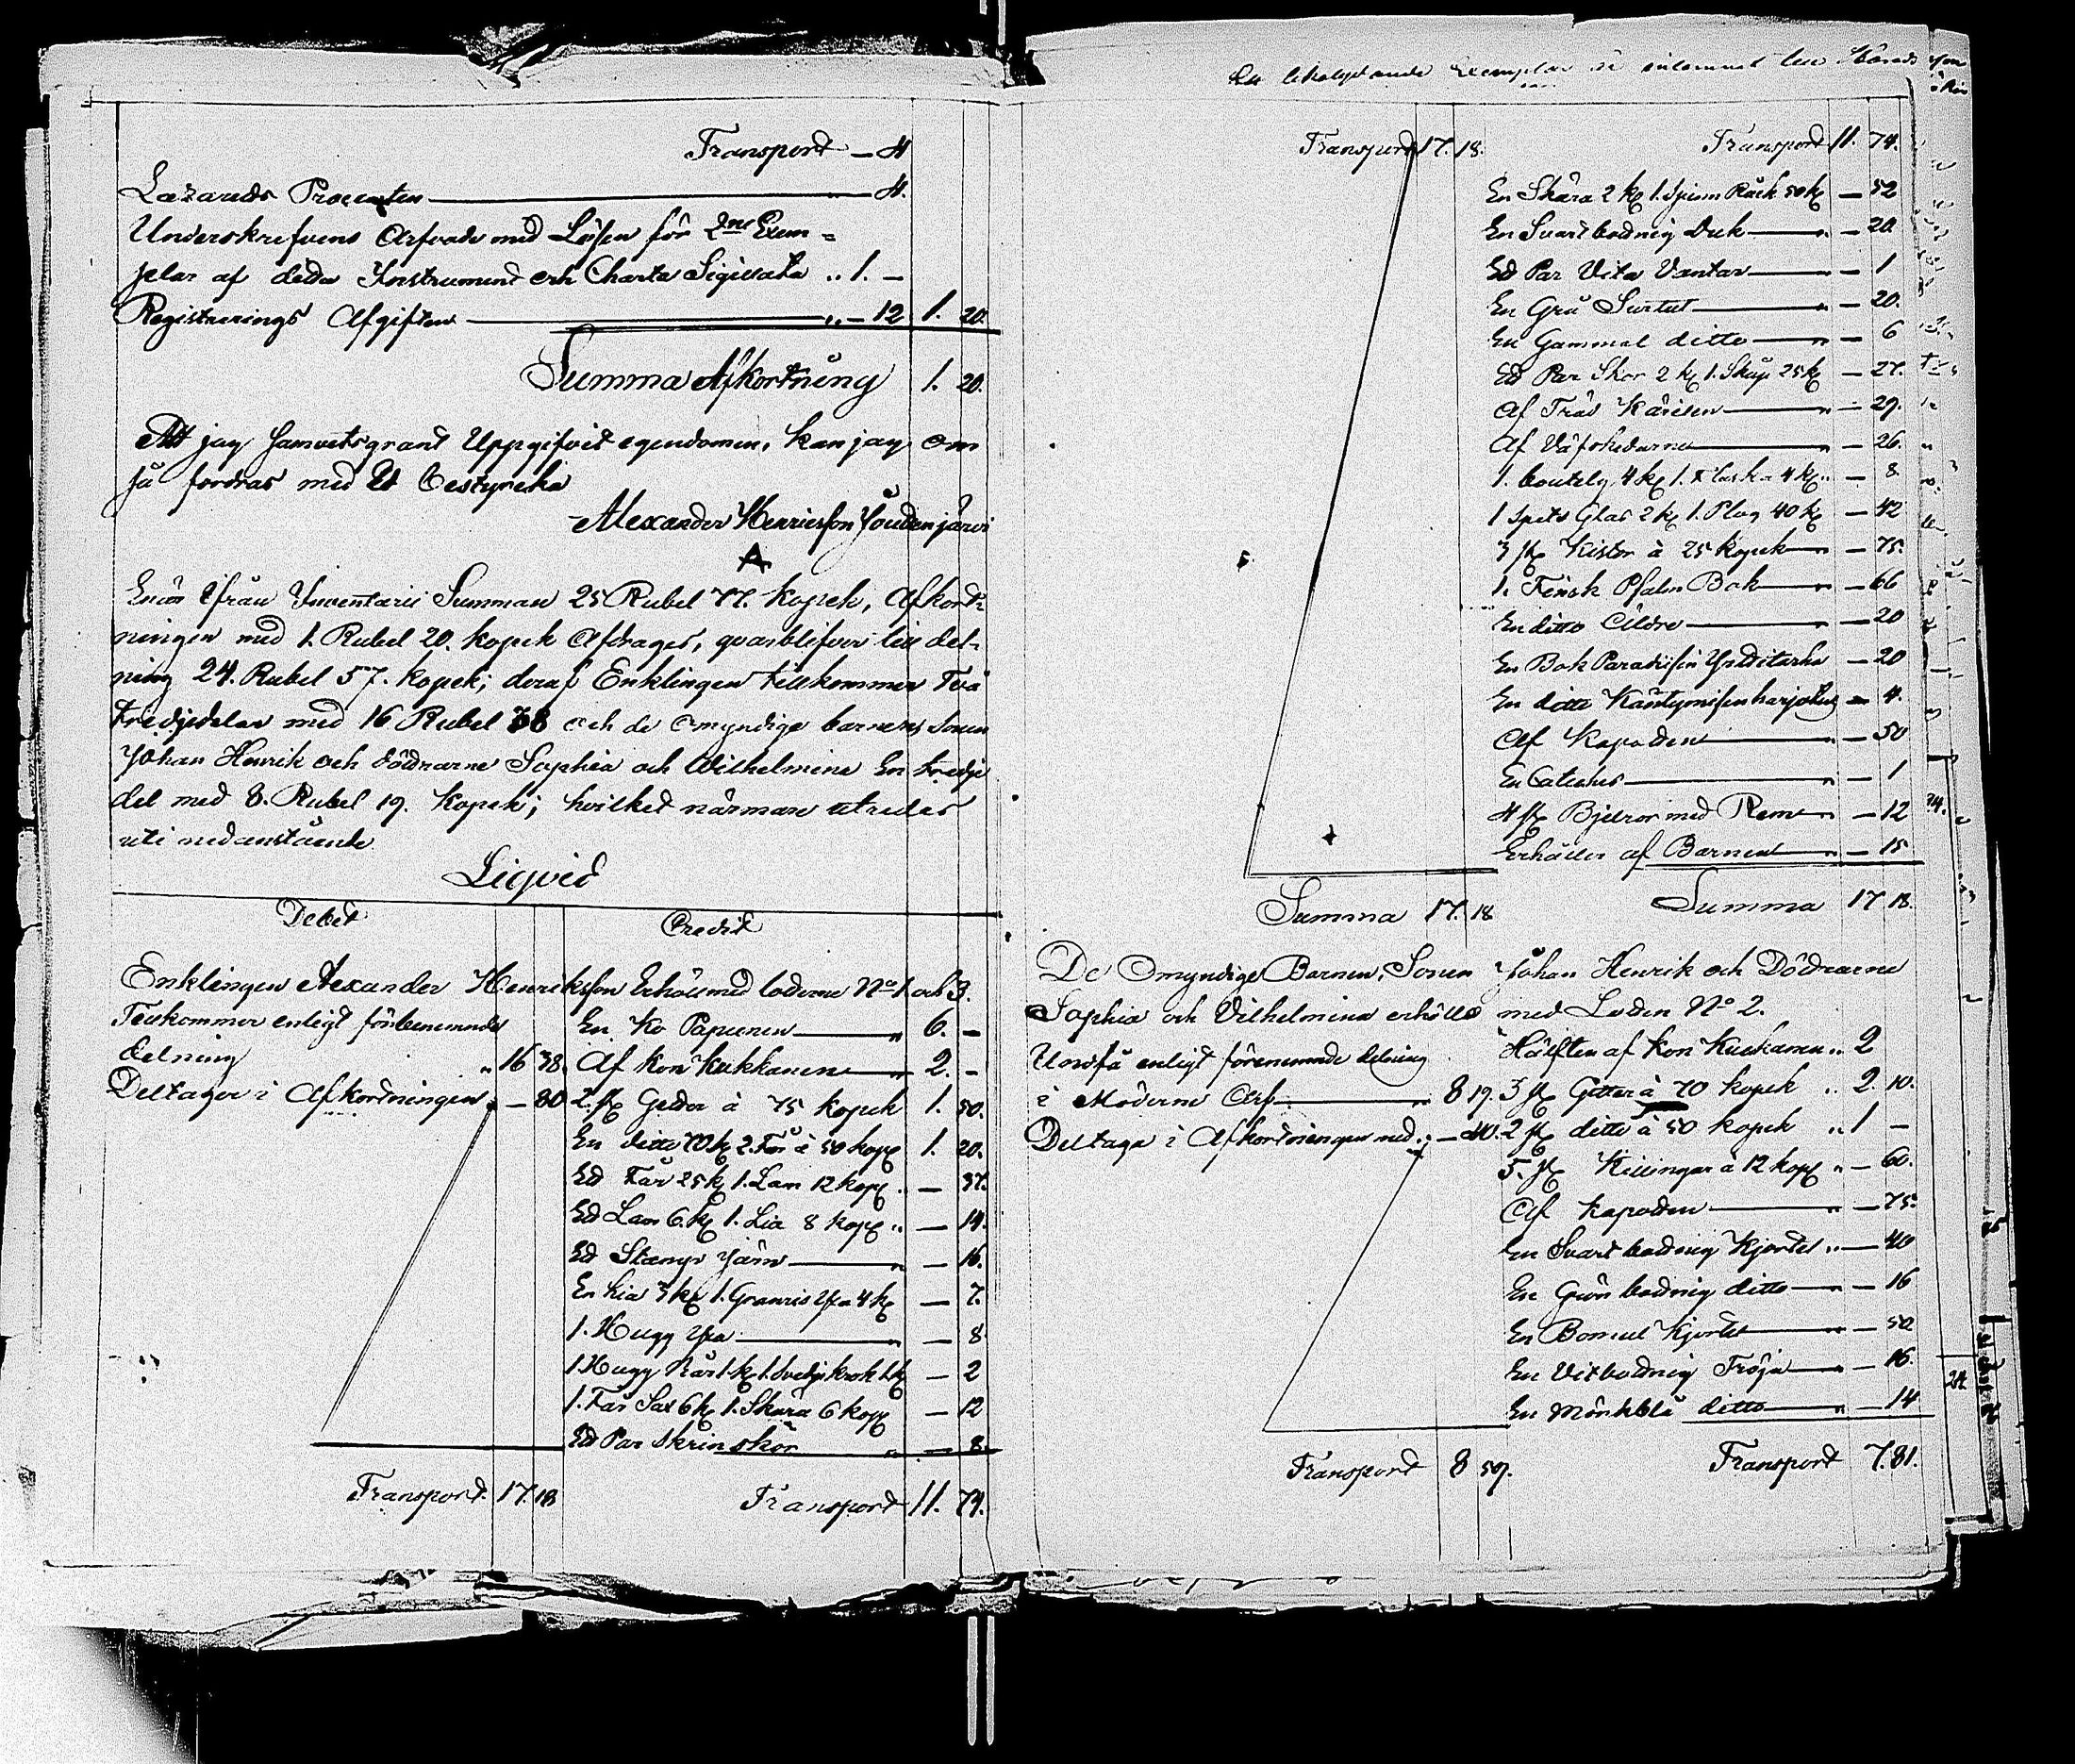 Transport — 4
Lazaretts Procenten — 4.
Underskrifvens Arfvode med Lösen för 2ne Exem=
plar af detta Instrument och Charta Sigillata „ 1. —
Registrerings Afgiften „ — 12 1. 20.
Summa Afkortning 1. 20.
Att jag samvetsgrant Uppgifvit egendomen, kan jag om
så fordras med Ed bestyrcka
Alexander Henricsson Jouttenjärvi
Enär ifrån Inventarii Summan 25 Rubel 77. kopek, Afkort=
ningen med 1. Rubel 20. kopek Afdrages, qvarblifver till del=
ning 24. Rubel 57. kopek; deraf Enklingen tillkommer Två
tredjedelar med 16 Rubel 38 och de omyndige barnen, Sonen
Johan Henrik och döttrarne Sophia och Wilhelmina En tredje
del med 8. Rubel 19. kopek; hvilket närmare utredes
uti nedanstående
Liqvid
Debet Credit
Enklingen Alexander Henriksson Erhöll med lotterne No 1. och 3.
Tillkommer enligt förbenemnde
delning „ 16 38.
Deltager i Afkortningen „ — 80
En Ko Papunen „ 6. —
Af kon Kukkanen „ 2. —
2. st Getter à 75 kopek 1. 50.
En ditto 70 k 2. Får à 50 kop 1. 20.
Ett Får 25 k 1. Lam 12 kop „ — 37.
Ett Lam 6. k 1. Lia 8 kop „ — 14.
Ett Stamp Järn „ — 16.
En Lia 3 k 1. Granris Yxa 4 k — 7.
1. Hugg Yxa „ — 8
1 Hugg Når 1. k 1. Svedje krok 1. k — 2
1. Får Sax 6 k 1. Skära 6 kop — 12
Ett Par Skrinskor „ — 8.
Transport 17. 18 Transport 11. 74.
Ett likalydande Exemplar är inlemnat till Härads
Transport 17. 18. Transport 11. 74.
En Skära 2 k 1. Spinn Råck 50 k — 52
En Svartbottnig Duk „ — 20
Ett Par Vita Vantar „ — 1
En Grå Surtut „ — 20.
En Gammal ditto „ — 6
Ett Par Skor 2 k 1. Skåp 25 k — 27.
Af Träd Kärilen „ — 29.
Af Väfskedarne „ — 26.
1. boutelg 4 k 1. Flaska 4 k „ — 8
1 Spits Glas 2 k 1. Plog 40 k — 42
3 st Kistor à 25 kopek „ — 75.
1. Finsk Psalm Bok „ — 66
En ditto Äldre „ — 20
En Bok Paradisin Yrttitarha — 20
En ditto Kääntymisen harjoitus — 4.
Af Kapotten „ — 50
En Cateches „ — 1
4 st Bjellror med Rem „ — 12
Erhåller af Barnen „ — 15
Summa 17. 18 Summa 17 18.
De Omyndige Barnen, Sonen Johan Henrik och Döttrarne
Sophia och Vilhelmina erhöllo med Lotten No 2.
Undfå enligt förenemnde delning
i Möderne Arf „ 8 19.
Deltaga i Afkortningen med „ — 40.
Hälften af kon Kuckanen „ 2
3 st Getter à 70 kopek „ 2. 10.
2 st ditto à 50 kopek „ 1 —
5. st Killingar à 12 kop „ — 60.
Af Kapotten „ — 75.
En Svart bottnig Kjortel „ — 40
En Grön bottnig ditto „ — 16
En Bomul Kjortel „ — 50
En Vitbottnig Tröja „ — 16.
En Mörkblå ditto „ — 14
Transport 8 59. Transport 7. 81.